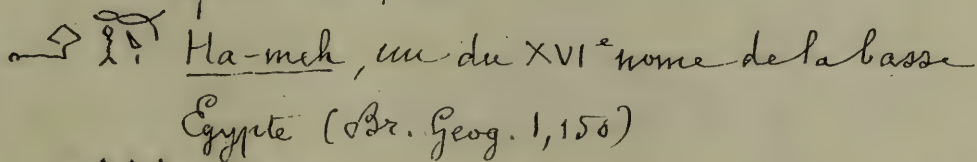 Ha-meh, un du XVIᵉ nome de la basse
Égypte (Br. Geog. 1,150)